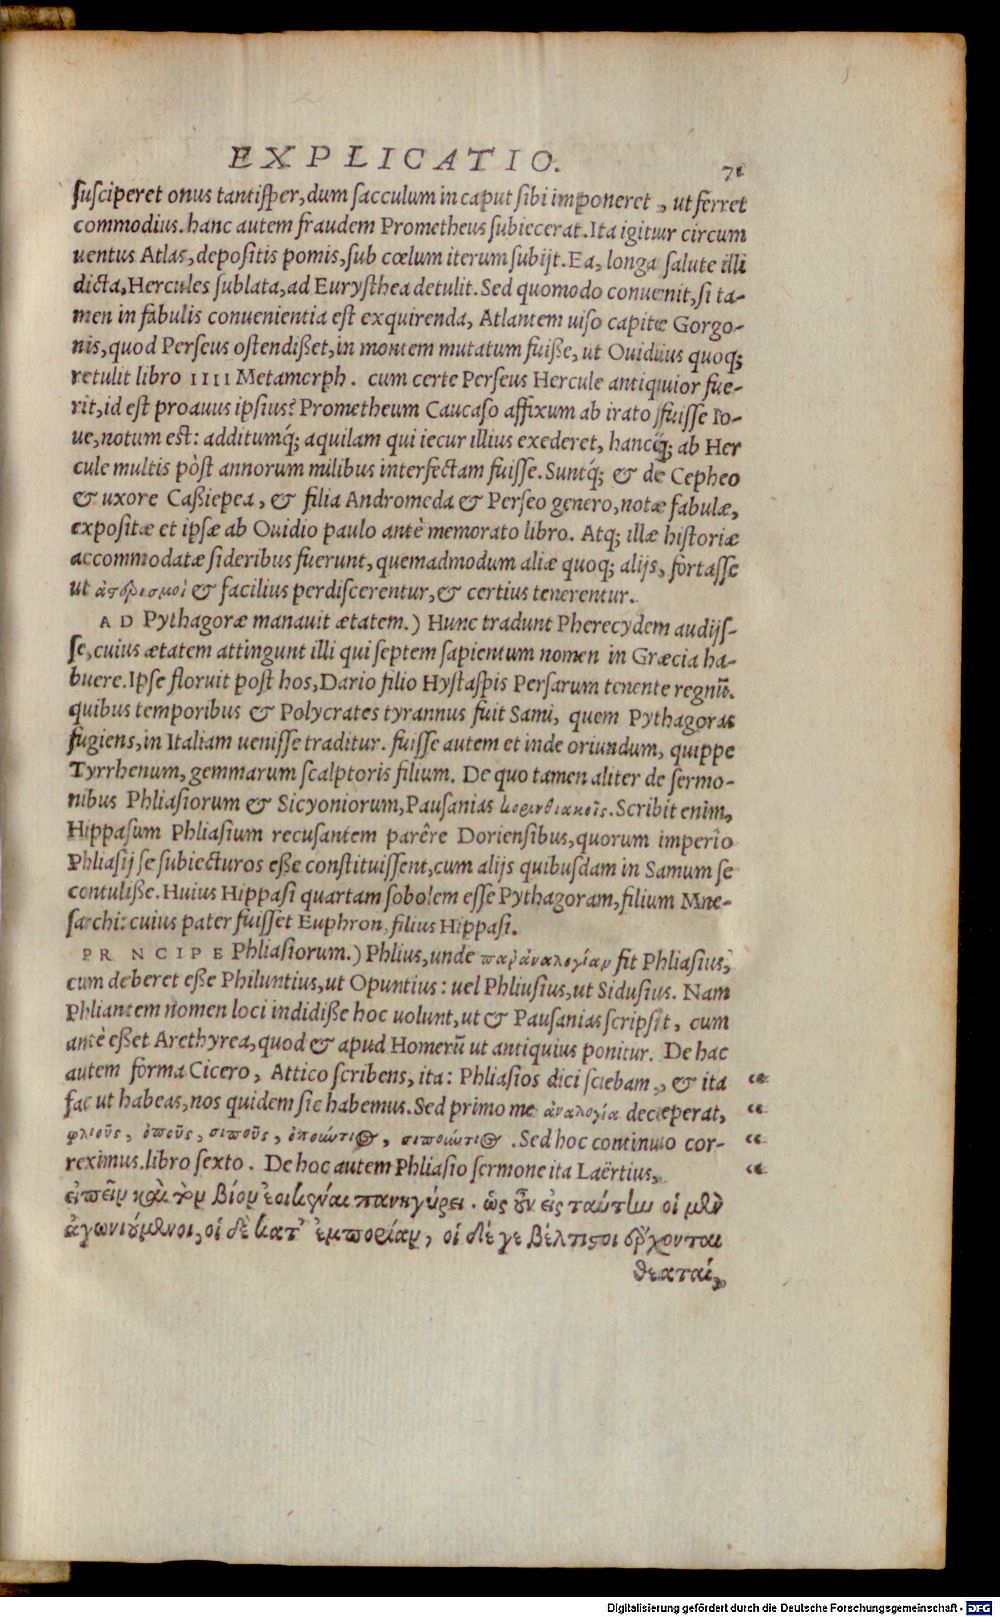 EXPLICATIO.
71
susciperet onus tantisper, dum sacculum in caput sibi imponeret, ut ferret
commodius. hanc autem fraudem Prometheus subiecerat. Ita igitur circum
uentus Atlas, depositis pomis, sub cœlum iterum subijt. Ea, longa salute illi
dicta, Hercules sublata, ad Eurysthea detulit. Sed quomodo conuenit, si ta-
men in fabulis conuenientia est exquirenda, Atlantem uiso capite Gorgo-
nis, quod Perseus ostendißet, in montem mutatum fuiße, ut Ouidius quoq;
retulit libro IIII Metamorph. cum certe Perseus Hercule antiquior fue-
rit, id est proauus ipsius? Prometheum Caucaso affixum ab irato fuisse Io-
ue, notum est: additumq́; aquilam qui iecur illius exederet, hancq́; ab Her
cule multis pòst annorum milibus interfectam fuisse. Suntq́; & de Cepheo
& uxore Caßiepea, & filia Andromeda & Perseo genero, notæ fabulæ,
expositæ et ipsæ ab Ouidio paulo antè memorato libro. Atq; illæ historiæ
accommodatæ sideribus fuerunt, quemadmodum aliæ quoq; alijs, fortasse
ut ἀστρισμοὶ & facilius perdiscerentur, & certius tenerentur.
AD Pythagoræ manauit ætatem.) Hunc tradunt Pherecydem audijs-
se, cuius ætatem attingunt illi qui septem sapientum nomen in Græcia ha-
buere. Ipse floruit post hos, Dario filio Hystaspis Persarum tenente regnū.
quibus temporibus & Polycrates tyrannus fuit Sami, quem Pythagoras
fugiens, in Italiam uenisse traditur. fuisse autem et inde oriundum, quippe
Tyrrhenum, gemmarum scalptoris filium. De quo tamen aliter de sermo-
nibus Phliasiorum & Sicyoniorum, Pausanias κορινθιακοῖς. Scribit enim,
Hippasum Phliasium recusantem parêre Doriensibus, quorum imperio
Phliasij se subiecturos eße constituissent, cum alijs quibusdam in Samum se
contuliße. Huius Hippasi quartam sobolem esse Pythagoram, filium Mne-
sarchi: cuius pater fuisset Euphron, filius Hippasi.
PR NCIPE Phliasiorum.) Phlius, unde παρ' ἀναλογίαν fit Phliasius,
cum deberet eße Philuntius, ut Opuntius: uel Phliusius, ut Sidusius. Nam
Phliantem nomen loci indidiße hoc uolunt, ut & Pausanias scripsit, cum
antè eßet Arethyrea, quod & apud Homerū ut antiquius ponitur. De hac
autem forma Cicero, Attico scribens, ita: Phliasios dici sciebam, & ita
fac ut habeas, nos quidem sic habemus. Sed primo me ἀναλογία deceperat,
φλιοῦς, ὀποῦς, σιποῦς, ὀπούντιος, σιπούντιος. Sed hoc continuo cor-
reximus. libro sexto. De hoc autem Phliasio sermone ita Laërtius,
εἰπεῖν καὶ τὸν βίον ἐοικέναι πανηγύρει. ὡς οὖν εἰς ταύτην οἱ μὲν
ἀγωνιούμενοι, οἱ δὲ κατ' ἐμπορίαν, οἱ δέ γε βέλτιστοι ἔρχονται
θεαταί,
Digitalisierung gefördert durch die Deutsche Forschungsgemeinschaft - DFG